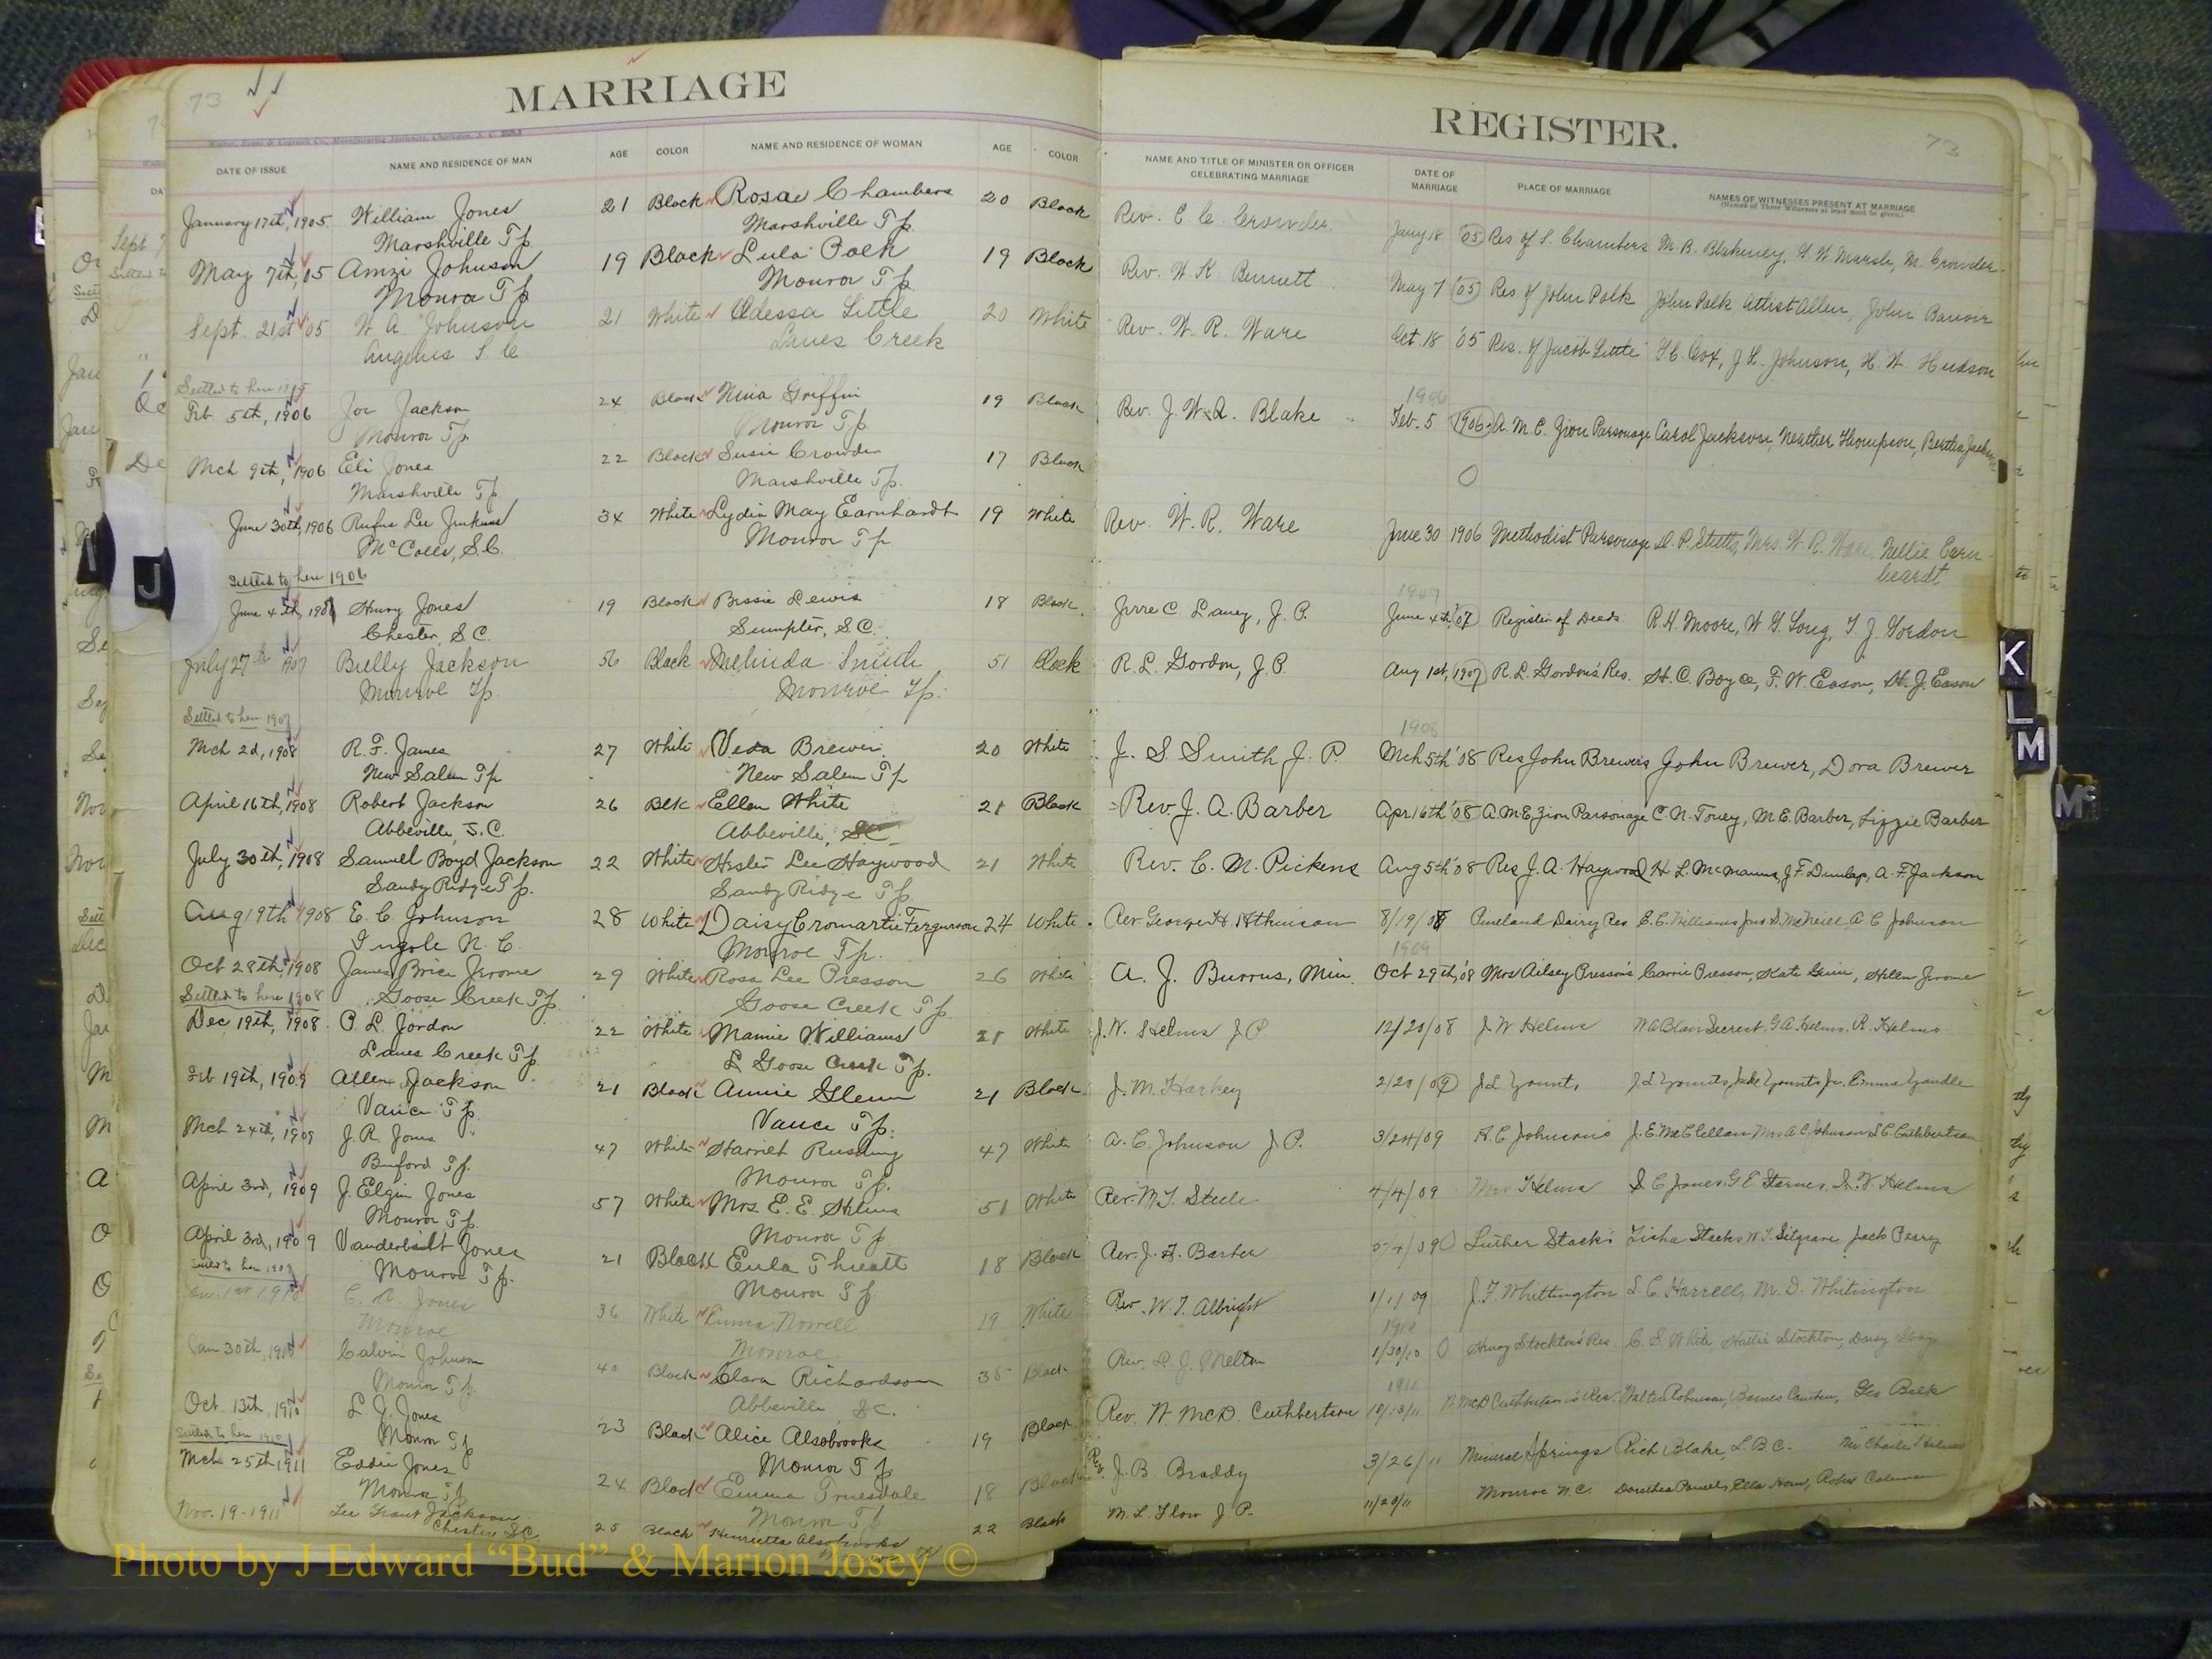 73
MARRIAGE
DATE OF ISSUE NAME AND RESIDENCE OF MAN AGE COLOR NAME AND RESIDENCE OF WOMAN AGE COLOR
January 17th, 1905 William Jones 21 Black Rosae Chambers 20 Black
Marshville Tp Marshville Tp
May 7th, 15 Amzi Johnson 19 Black Lula Polk 19 Black
Monroe Tp Monroe Tp
Sept. 21st '05 W A Johnson 21 White Odessa Little 20 White
Angelus S C Lanes Creek
Settled to here
Feb 5th, 1906 Joe Jackson 24 Black Nina Griffin 19 Black
Monroe Tp Monroe Tp
Mch 9th, 1906 Eli Jones 22 Black Susie Crowder 17 Black
Marshville Tp Marshville Tp.
June 30th, 1906 Rufus Lee Jenkins 34 White Lydia May Earnhardt 19 White
McColls, S.C. Monroe Tp
Settled to here 1906
June 4th, 1907 Henry Jones 19 Black Bessie Lewis 18 Black
Chester, S.C. Sumpter, S.C.
July 27th 1907 Bully Jackson 56 Black Melinda Smith 51 Black
Monroe Tp. Monroe Tp.
Settled to here 1907
Mch 2d, 1908 R. F. James 27 White Veda Brewer 20 White
New Salem Tp New Salem Tp
April 16th, 1908 Robert Jackson 26 Blk Ellen White 21 Black
Abbeville, S.C. Abbeville, SC
July 30th, 1908 Samuel Boyd Jackson 22 White Hester Lee Haywood 21 White
Sandy Ridge Tp. Sandy Ridge Tp.
Aug 19th 1908 E. C. Johnson 28 White Daisy Cromartie Ferguson 24 White
Ingole N. C. Monroe Tp.
Oct 28th, 1908 James Brice Jerome 29 White Rosa Lee Presson 26 White
Settled to here 1908 Goose Creek Tp. Goose Creek Tp.
Dec 19th, 1908 P. L. Jordon 22 White Mamie Williams 21 White
Lanes Creek Tp. L Goose Creek Tp.
Feb 19th, 1909 Allen Jackson 21 Black Annie Glenn 21 Black
Vance Tp. Vance Tp.
Mch 24th, 1909 J. R. Jones 47 White Harriet Rushing 47 White
Buford Tp. Monroe Tp.
April 3rd, 1909 J. Elgin Jones 57 White Mrs. E. E. Helms 51 White
Monroe Tp. Monroe Tp
April 3rd, 1909 Vanderbilt Jones 21 Black Eula Threatt 18 Black
Settled to here 1909 Monroe Tp. Monroe Tp
1910 C. A. Jones 36 White Nowell 19 White
Monroe Monroe
Jan 30th, 1910 Calvin Johnson 40 Black Clara Richardson 35 Black
Monroe Tp. Abbeville S.C.
Oct. 13th, 1910 L. J. Jones 23 Black Alice Alsobrooks 19 Black
Settled to here 1910 Monroe Tp Monroe Tp
Mch 25th 1911 Eddie Jones 24 Black Emma Truesdale 18 Black
Monroe Tp Monroe Tp
Nov. 19-1911 Lee Grant Jackson 25 Black Henrietta Alsobrooks 22 Black
Chester S.C.
REGISTER.
73
NAME AND TITLE OF MINISTER OR OFFICER CELEBRATING MARRIAGE DATE OF MARRIAGE PLACE OF MARRIAGE NAMES OF WITNESSES PRESENT AT MARRIAGE
(Names of Three Witnesses at least must be given.)
Rev. C. C. Crowder. Jany 18 '05 Res of S. Chambers M. B. Blakeney, Marsh, M. Crowder
Rev. W. K. Bennett May 7 '05 Res of John Polk John Polk, Allen, John
Rev. W. R. Ware Oct. 18 '05 Res. of Jacob Little Cox, Johnson, H. W. Hudson
1906
Rev. J. W. A. Blake Feb. 5 1906 A. M. E. Zion Parsonage Carol Jackson, Neather Thompson, Bertha Jackson
Rev. W. R. Ware June 30 1906 Methodist Parsonage D. P. Stitts, Mrs. W. R. Ware, Nellie Earn-
heardt
1907
Jerre C Laney, J. P. June 4th, '07 Register of Deeds R. H. Moore, W. G. Long, T. J. Gordon
R. L. Gordon, J. P. Aug 1st, 1907 R. L. Gordon's Res. H. C. Boyce, T. W. Eason, H. J. Eason
1908
J. S. Smith J. P. Mch 5th '08 Res John Brewers John Brewer, Dora Brewer
Rev. J. A. Barber Apr 16th '08 A.M.E. Zion Parsonage C. N. Toney, M. E. Barber, Lizzie Barber
Rev. C. M. Pickens Aug 5th '08 Res J. A. Haywood H. L. McManus, J F. Dunlap, A. F. Jackson
Rev George H Atkinson 8/19/08 Pineland Dairy Res E. C. Williams McNeill, A C Johnson
1909
A. J. Burrus, Min. Oct 29th, '08 Mrs Ailsey Presson's Carrie Presson, Kate Helen Jerome
J. W. Helms J P 12/20/08 J. W Helms W A Blair Secrest, G. A. Helms, R. Helms
J. M. Harkey 2/20/09 J L Younts Jake Younts Jr. Emma Yandle
A. C. Johnson J P. 3/24/09 A. C. Johnson's J. E. McClellan Mrs A C Johnson S. C. Cuthbertson
Rev. M. T. Steele 4/4/09 Mrs Helms S C Jones, G. E. Starnes, Helms
Rev. J. A. Barber 09 Luther Stacks Lisha Stacks Jack Perry
Rev. W. T. Albright 1/1/09 J. F. Whittington L. C. Harrell, M. D. Whitington
1910
Rev. L. J. Melton 1/30/10 Henry Stockton's Res. C. S. White, Hattie Stockton, Daisy
1910
Rev. W. McD. Cuthbertson 10/13/11 W. McD Cuthbertson's Res. Walter Robinson, Geo Belk
Rev. J. B. Braddy 3/26/11 Mineral Springs Rich Blake, L. B C. Helms
M. L. Flow J. P. 11/20/11 Monroe N. C. Dorothea Ella Robert Coleman
I
J
K
L
M
Mc
Photo by J Edward “Bud” & Marion Josey ©